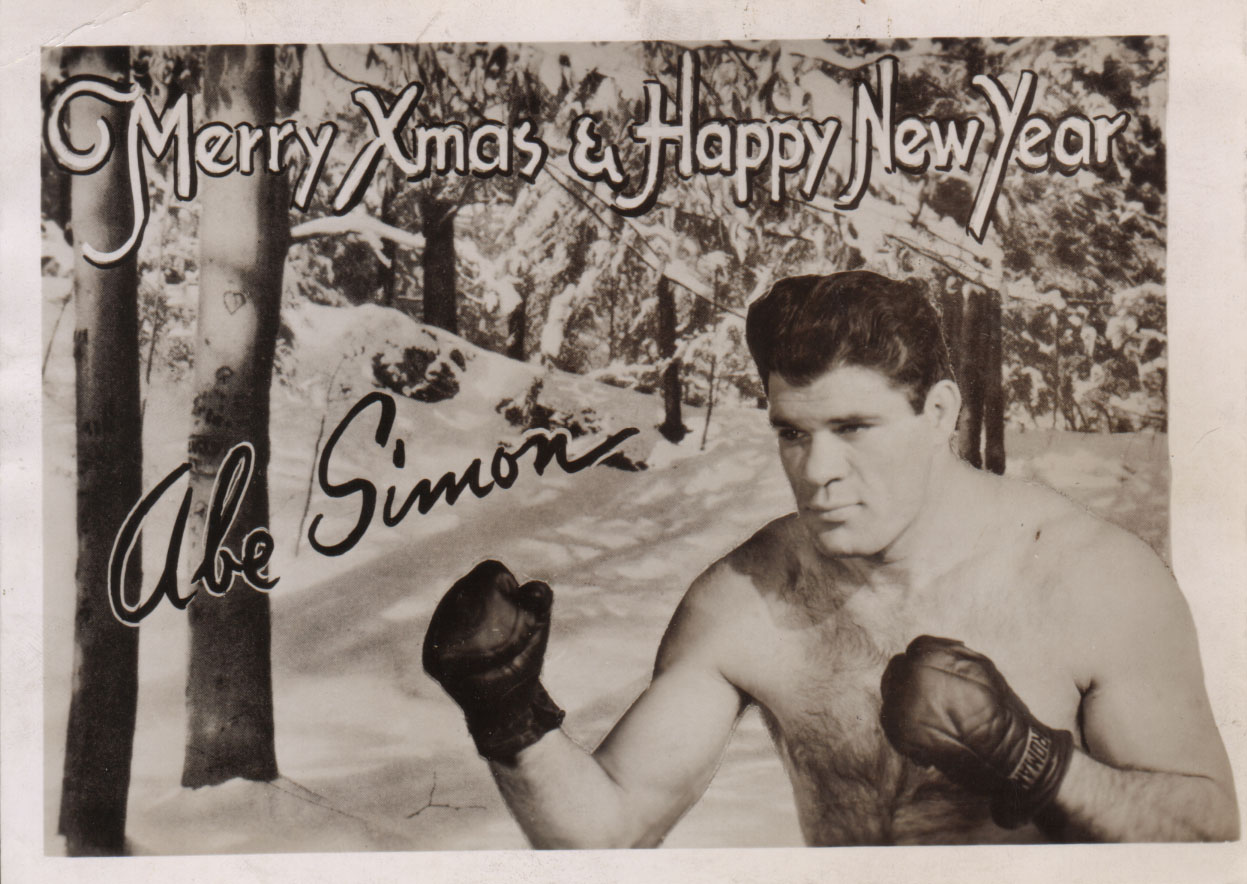 Merry Xmas & Happy New Year
Abe Simon
ROMAN